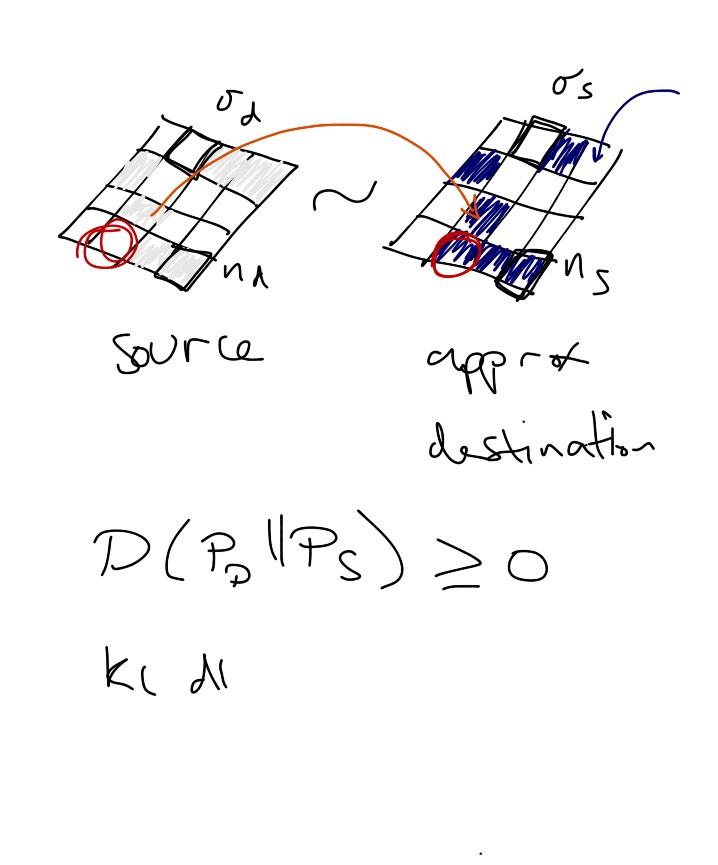 σd σs
~
nd ns
source approx
destination
D(PD||PS) ≥ 0
KL